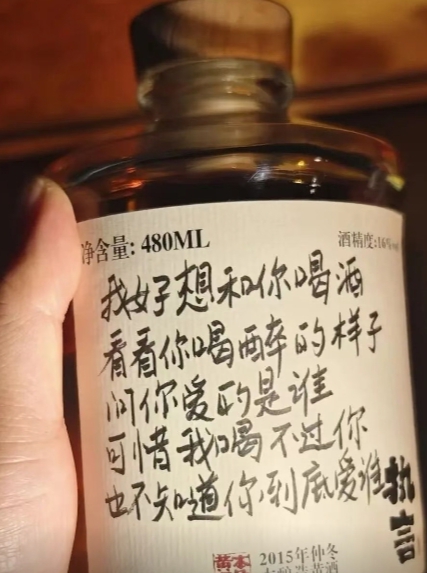 净含量: 480ML
酒精度:16%vol
我好想和你喝酒
看看你喝醉的样子
问你爱的是谁
可惜我喝不过你
也不知道你到底爱谁
执言
2015年仲冬